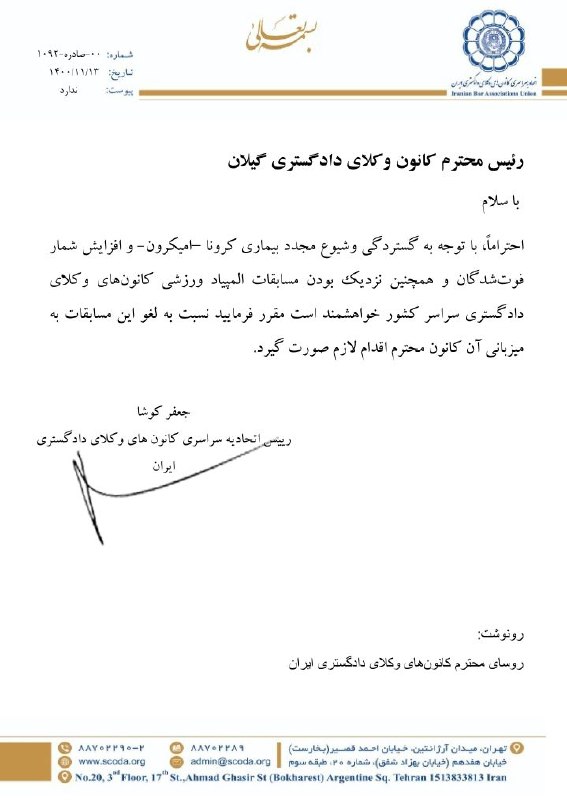 بسمه تعالی
شماره: ۰۰-صادره-۱۰۹۲
تاریخ: ۱۴۰۰/۱۱/۱۳
پیوست: ندارد
اتحادیه سراسری کانون های وکلای دادگستری ایران
Iranian Bar Associations Union
رئیس محترم کانون وکلای دادگستری گیلان
با سلام
احتراماً، با توجه به گستردگی وشیوع مجدد بیماری کرونا –امیکرون- و افزایش شمار
فوت‌شدگان و همچنین نزدیک بودن مسابقات المپیاد ورزشی کانون‌های وکلای
دادگستری سراسر کشور خواهشمند است مقرر فرمایید نسبت به لغو این مسابقات به
میزبانی آن کانون محترم اقدام لازم صورت گیرد.
جعفر کوشا
رییس اتحادیه سراسری کانون های وکلای دادگستری
ایران
رونوشت:
روسای محترم کانون‌های وکلای دادگستری ایران
تهران، میدان آرژانتین، خیابان احمد قصیر(بخارست)
خیابان هفدهم (خیابان بهزاد شفق)، شماره ۲۰، طبقه سوم
۸۸۷۰۲۲۸۹
admin@scoda.org
۸۸۷۰۲۲۹۰-۲
www.scoda.org
No.20, 3rd Floor, 17th St.,Ahmad Ghasir St (Bokharest) Argentine Sq. Tehran 1513833813 Iran